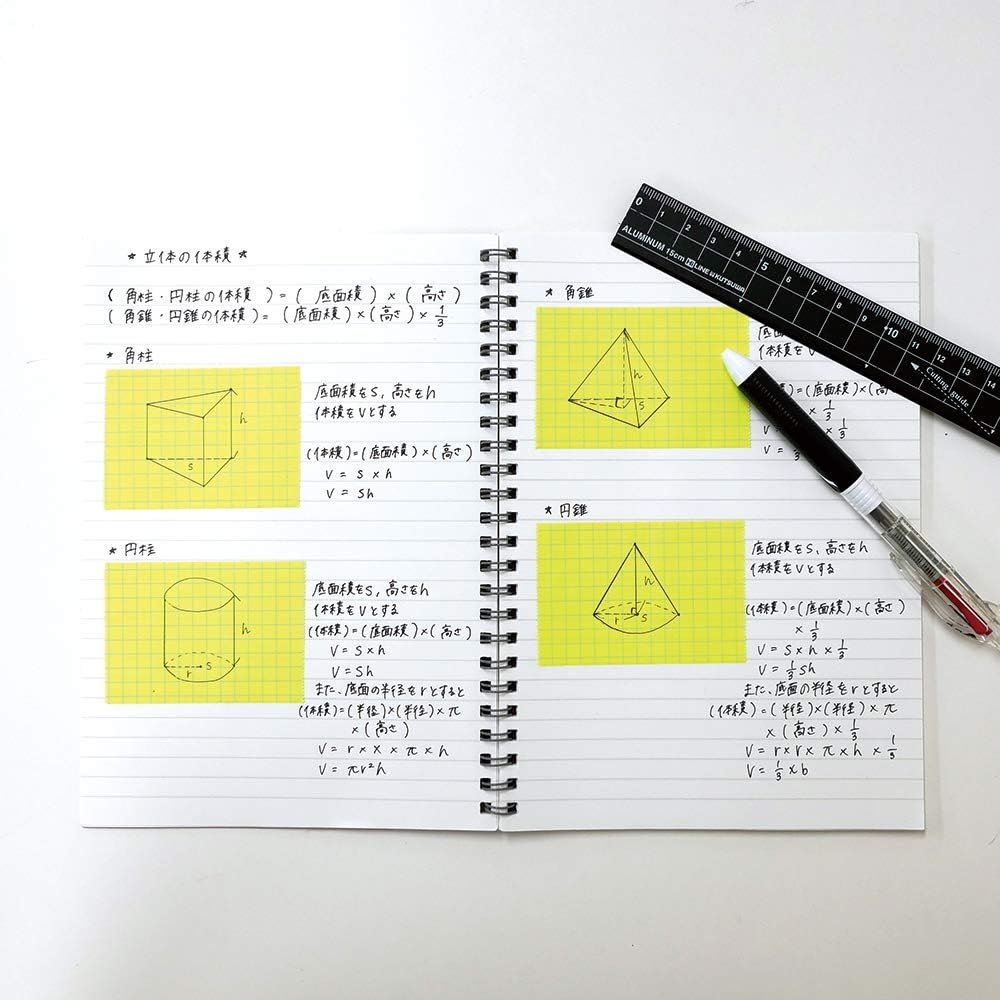 * 立体の体積 *
( 角柱・円柱の体積 ) = ( 底面積 ) × ( 高さ )
( 角錐・円錐の体積 ) = (底面積) × (高さ) × 1/3
* 角柱
h
S
底面積をS, 高さをh
体積をVとする
(体積) = (底面積) × (高さ)
V = S × h
V = Sh
* 円柱
h
r S
底面積をS, 高さをh
体積をVとする
(体積) = (底面積) × (高さ)
V = S × h
V = Sh
また、底面の半径をrとすると
(体積) = (半径) × (半径) × π
× (高さ)
V = r × x × π × h
V = πr²h
* 角錐
h
S
底面
体積を
) = (底面積) × (高さ
× 1/3
× 1/3
V =
* 円錐
h
r S
底面積をS, 高さをh
体積をVとする
(体積) = (底面積) × (高さ)
× 1/3
V = S × h × 1/3
V = 1/3 Sh
また、底面の半径をrとすると
(体積) = (半径) × (半径) × π
× (高さ) × 1/3
V = r × r × π × h × 1/3
V = 1/3 × b
0 1 2 3 4 5 6 7 8 9 10 11 12 13 14
ALUMINUM 15cm LINE KUTSUWA
Cutting guide